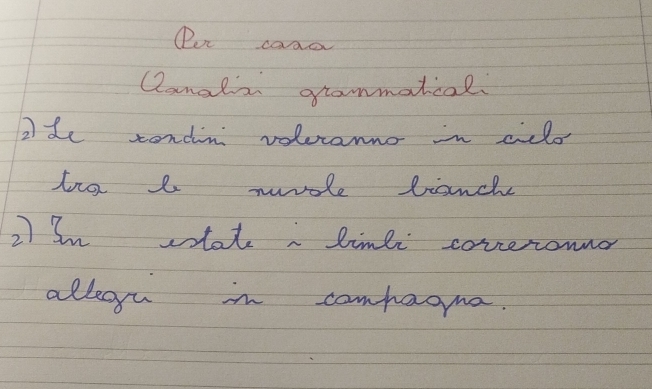 Per casa
Analisi grammaticali
2) Le rondini voleranno in cielo
tra le nuvole bianche
2) In estate i bimbi correranno
allegri in campagna.